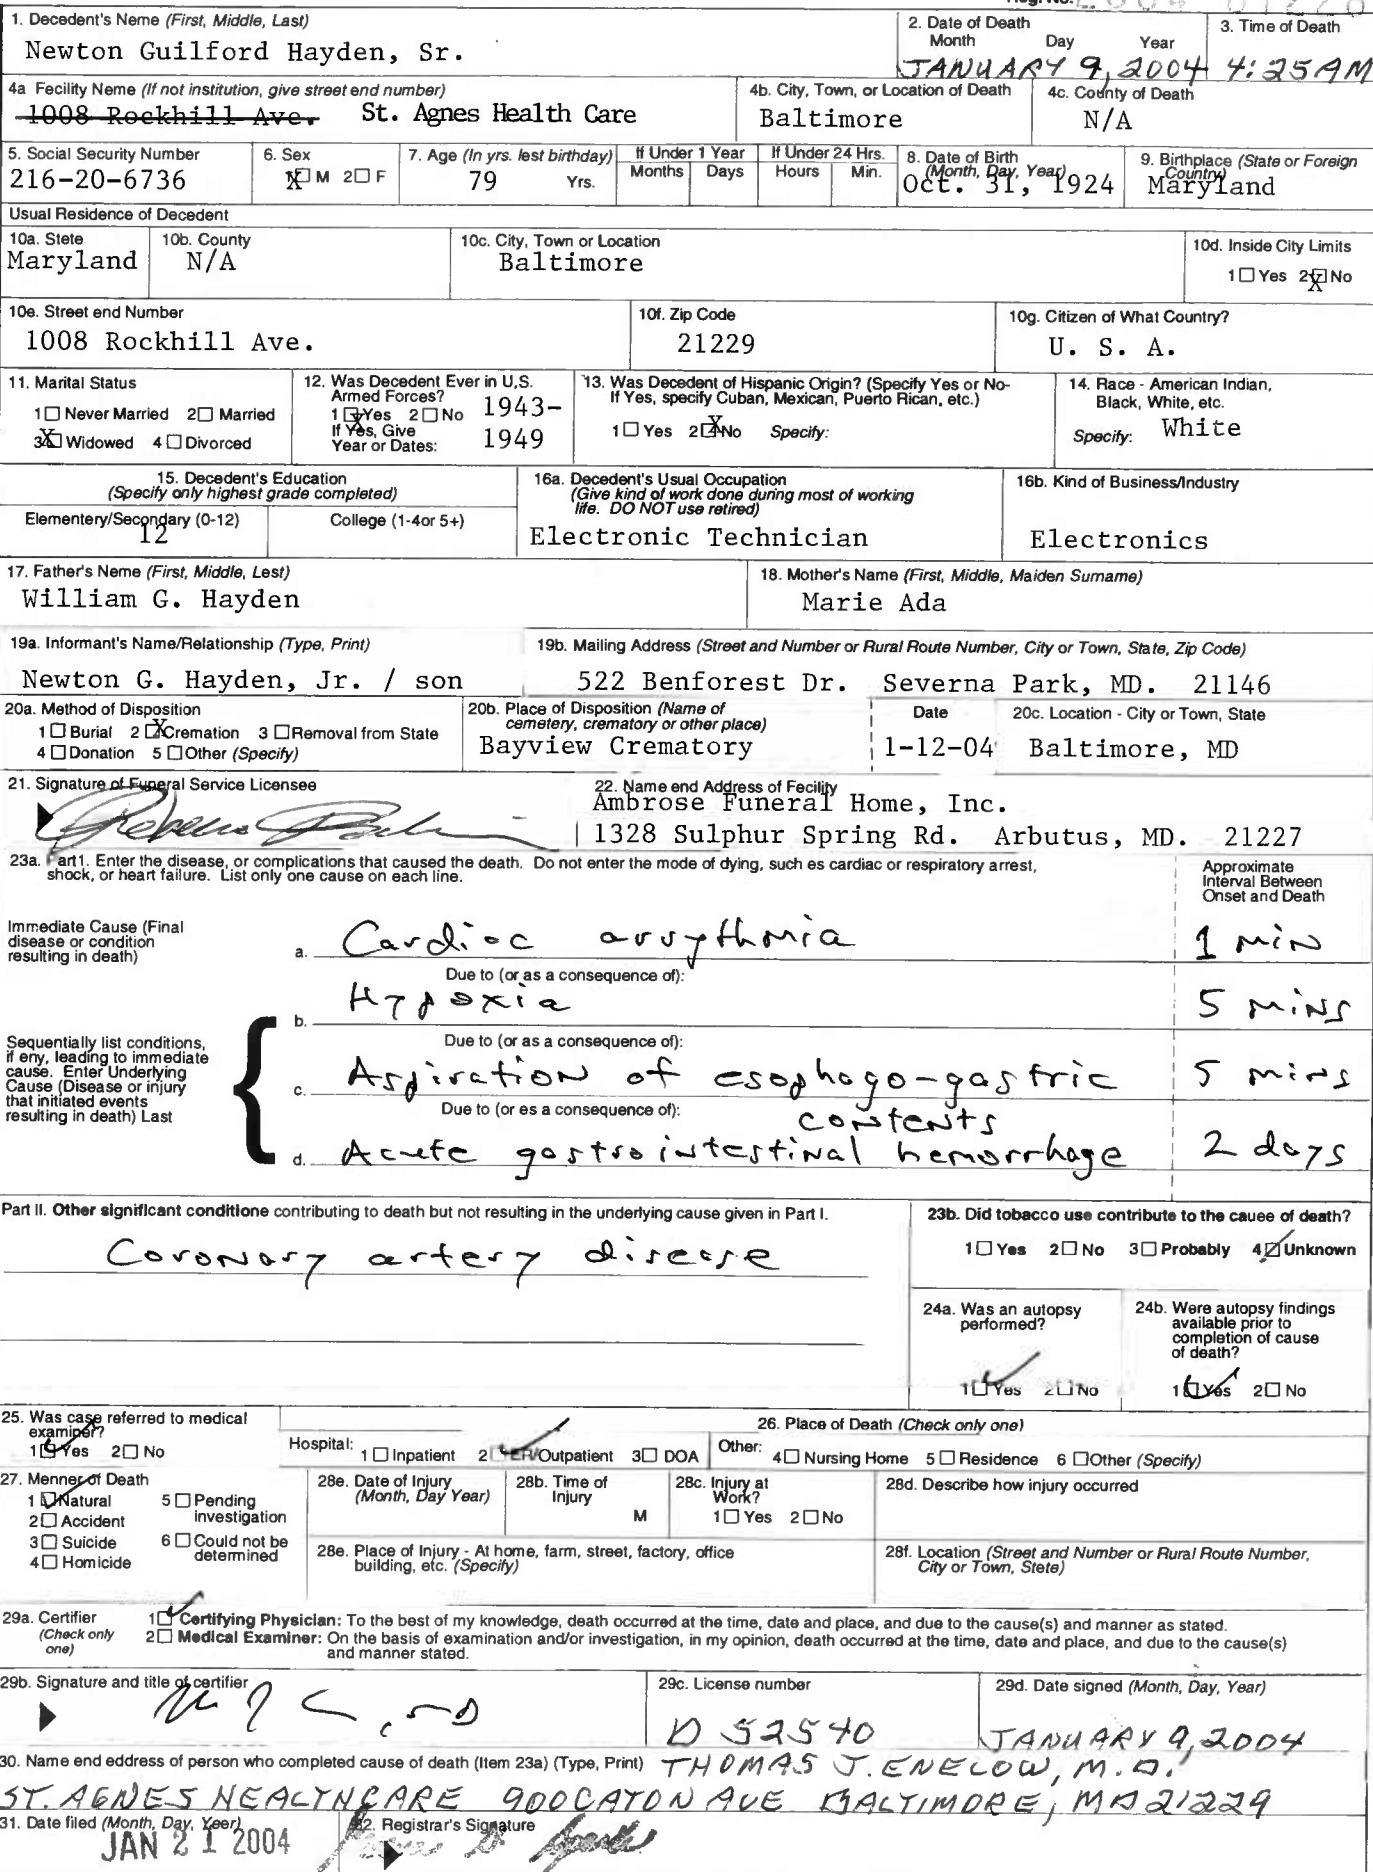 1. Decedent's Name (First, Middle, Last)
Newton Guilford Hayden, Sr.
2. Date of Death
Month Day Year
JANUARY 9, 2004
3. Time of Death
4:25AM
4a Fecility Name (If not institution, give street end number)
1008 Rockhill Ave. St. Agnes Health Care
4b. City, Town, or Location of Death
Baltimore
4c. County of Death
N/A
5. Social Security Number
216-20-6736
6. Sex
X M 2☐ F
7. Age (In yrs. lest birthday)
79 Yrs.
If Under 1 Year
Months Days
If Under 24 Hrs.
Hours Min.
8. Date of Birth
(Month, Day, Year)
Oct. 31, 1924
9. Birthplace (State or Foreign
Country)
Maryland
Usual Residence of Decedent
10a. Stete
Maryland
10b. County
N/A
10c. City, Town or Location
Baltimore
10d. Inside City Limits
1☐ Yes 2☒ No
10e. Street end Number
1008 Rockhill Ave.
10f. Zip Code
21229
10g. Citizen of What Country?
U. S. A.
11. Marital Status
1☐ Never Married 2☐ Married
3☒ Widowed 4☐ Divorced
12. Was Decedent Ever in U.S.
Armed Forces?
1☒Yes 2☐ No 1943-
If Yes, Give
Year or Dates: 1949
13. Was Decedent of Hispanic Origin? (Specify Yes or No-
If Yes, specify Cuban, Mexican, Puerto Rican, etc.)
1☐ Yes 2☒No Specify:
14. Race - American Indian,
Black, White, etc.
Specify: White
15. Decedent's Education
(Specify only highest grade completed)
Elementery/Secondary (0-12)
12
College (1-4or 5+)
16a. Decedent's Usual Occupation
(Give kind of work done during most of working
life. DO NOT use retired)
Electronic Technician
16b. Kind of Business/Industry
Electronics
17. Father's Name (First, Middle, Lest)
William G. Hayden
18. Mother's Name (First, Middle, Maiden Surname)
Marie Ada
19a. Informant's Name/Relationship (Type, Print)
Newton G. Hayden, Jr. / son
19b. Mailing Address (Street and Number or Rural Route Number, City or Town, State, Zip Code)
522 Benforest Dr. Severna Park, MD. 21146
20a. Method of Disposition
1☐ Burial 2☒Cremation 3☐Removal from State
4☐ Donation 5☐Other (Specify)
20b. Place of Disposition (Name of
cemetery, crematory or other place)
Bayview Crematory
Date
1-12-04
20c. Location - City or Town, State
Baltimore, MD
21. Signature of Funeral Service Licensee
22. Name end Address of Fecility
Ambrose Funeral Home, Inc.
1328 Sulphur Spring Rd. Arbutus, MD. 21227
23a. Part1. Enter the disease, or complications that caused the death. Do not enter the mode of dying, such es cardiac or respiratory arrest,
shock, or heart failure. List only one cause on each line.
Approximate
Interval Between
Onset and Death
Immediate Cause (Final
disease or condition
resulting in death)
a. Cardiac arrythmia 1 min
Due to (or as a consequence of):
b. Hypoxia 5 mins
Sequentially list conditions,
if eny, leading to immediate
cause. Enter Underlying
Cause (Disease or injury
that initiated events
resulting in death) Last
Due to (or as a consequence of):
c. Aspiration of esophago-gastric 5 mins
contents
Due to (or es a consequence of):
d. Acute gastrointestinal hemorrhage 2 days
Part II. Other significant conditione contributing to death but not resulting in the underlying cause given in Part I.
Coronary artery disease
23b. Did tobacco use contribute to the cauee of death?
1☐ Yes 2☐ No 3☐ Probably 4☑ Unknown
24a. Was an autopsy
performed?
1☑ Yes 2☐ No
24b. Were autopsy findings
available prior to
completion of cause
of death?
1☑ Yes 2☐ No
25. Was case referred to medical
examiner?
1☑ Yes 2☐ No
26. Place of Death (Check only one)
Hospital: 1☐ Inpatient 2☑ ER/Outpatient 3☐ DOA
Other: 4☐ Nursing Home 5☐ Residence 6☐Other (Specify)
27. Menner of Death
1☑Natural
2☐ Accident
3☐ Suicide
4☐ Homicide
5☐ Pending
investigation
6☐ Could not be
determined
28e. Date of Injury
(Month, Day Year)
28b. Time of
Injury
M
28c. Injury at
Work?
1☐ Yes 2☐ No
28d. Describe how injury occurred
28e. Place of Injury - At home, farm, street, factory, office
building, etc. (Specify)
28f. Location (Street and Number or Rural Route Number,
City or Town, Stete)
29a. Certifier
(Check only
one)
1☑ Certifying Physician: To the best of my knowledge, death occurred at the time, date and place, and due to the cause(s) and manner as stated.
2☐ Medical Examiner: On the basis of examination and/or investigation, in my opinion, death occurred at the time, date and place, and due to the cause(s)
and manner stated.
29b. Signature and title of certifier
29c. License number
D 52540
29d. Date signed (Month, Day, Year)
JANUARY 9, 2004
30. Name end eddress of person who completed cause of death (Item 23a) (Type, Print) THOMAS J. ENELOW, M.D.
ST. AGNES HEALTHCARE 900 CATON AVE BALTIMORE, MD 21229
31. Date filed (Month, Day, Yeer)
JAN 21 2004
32. Registrar's Signature